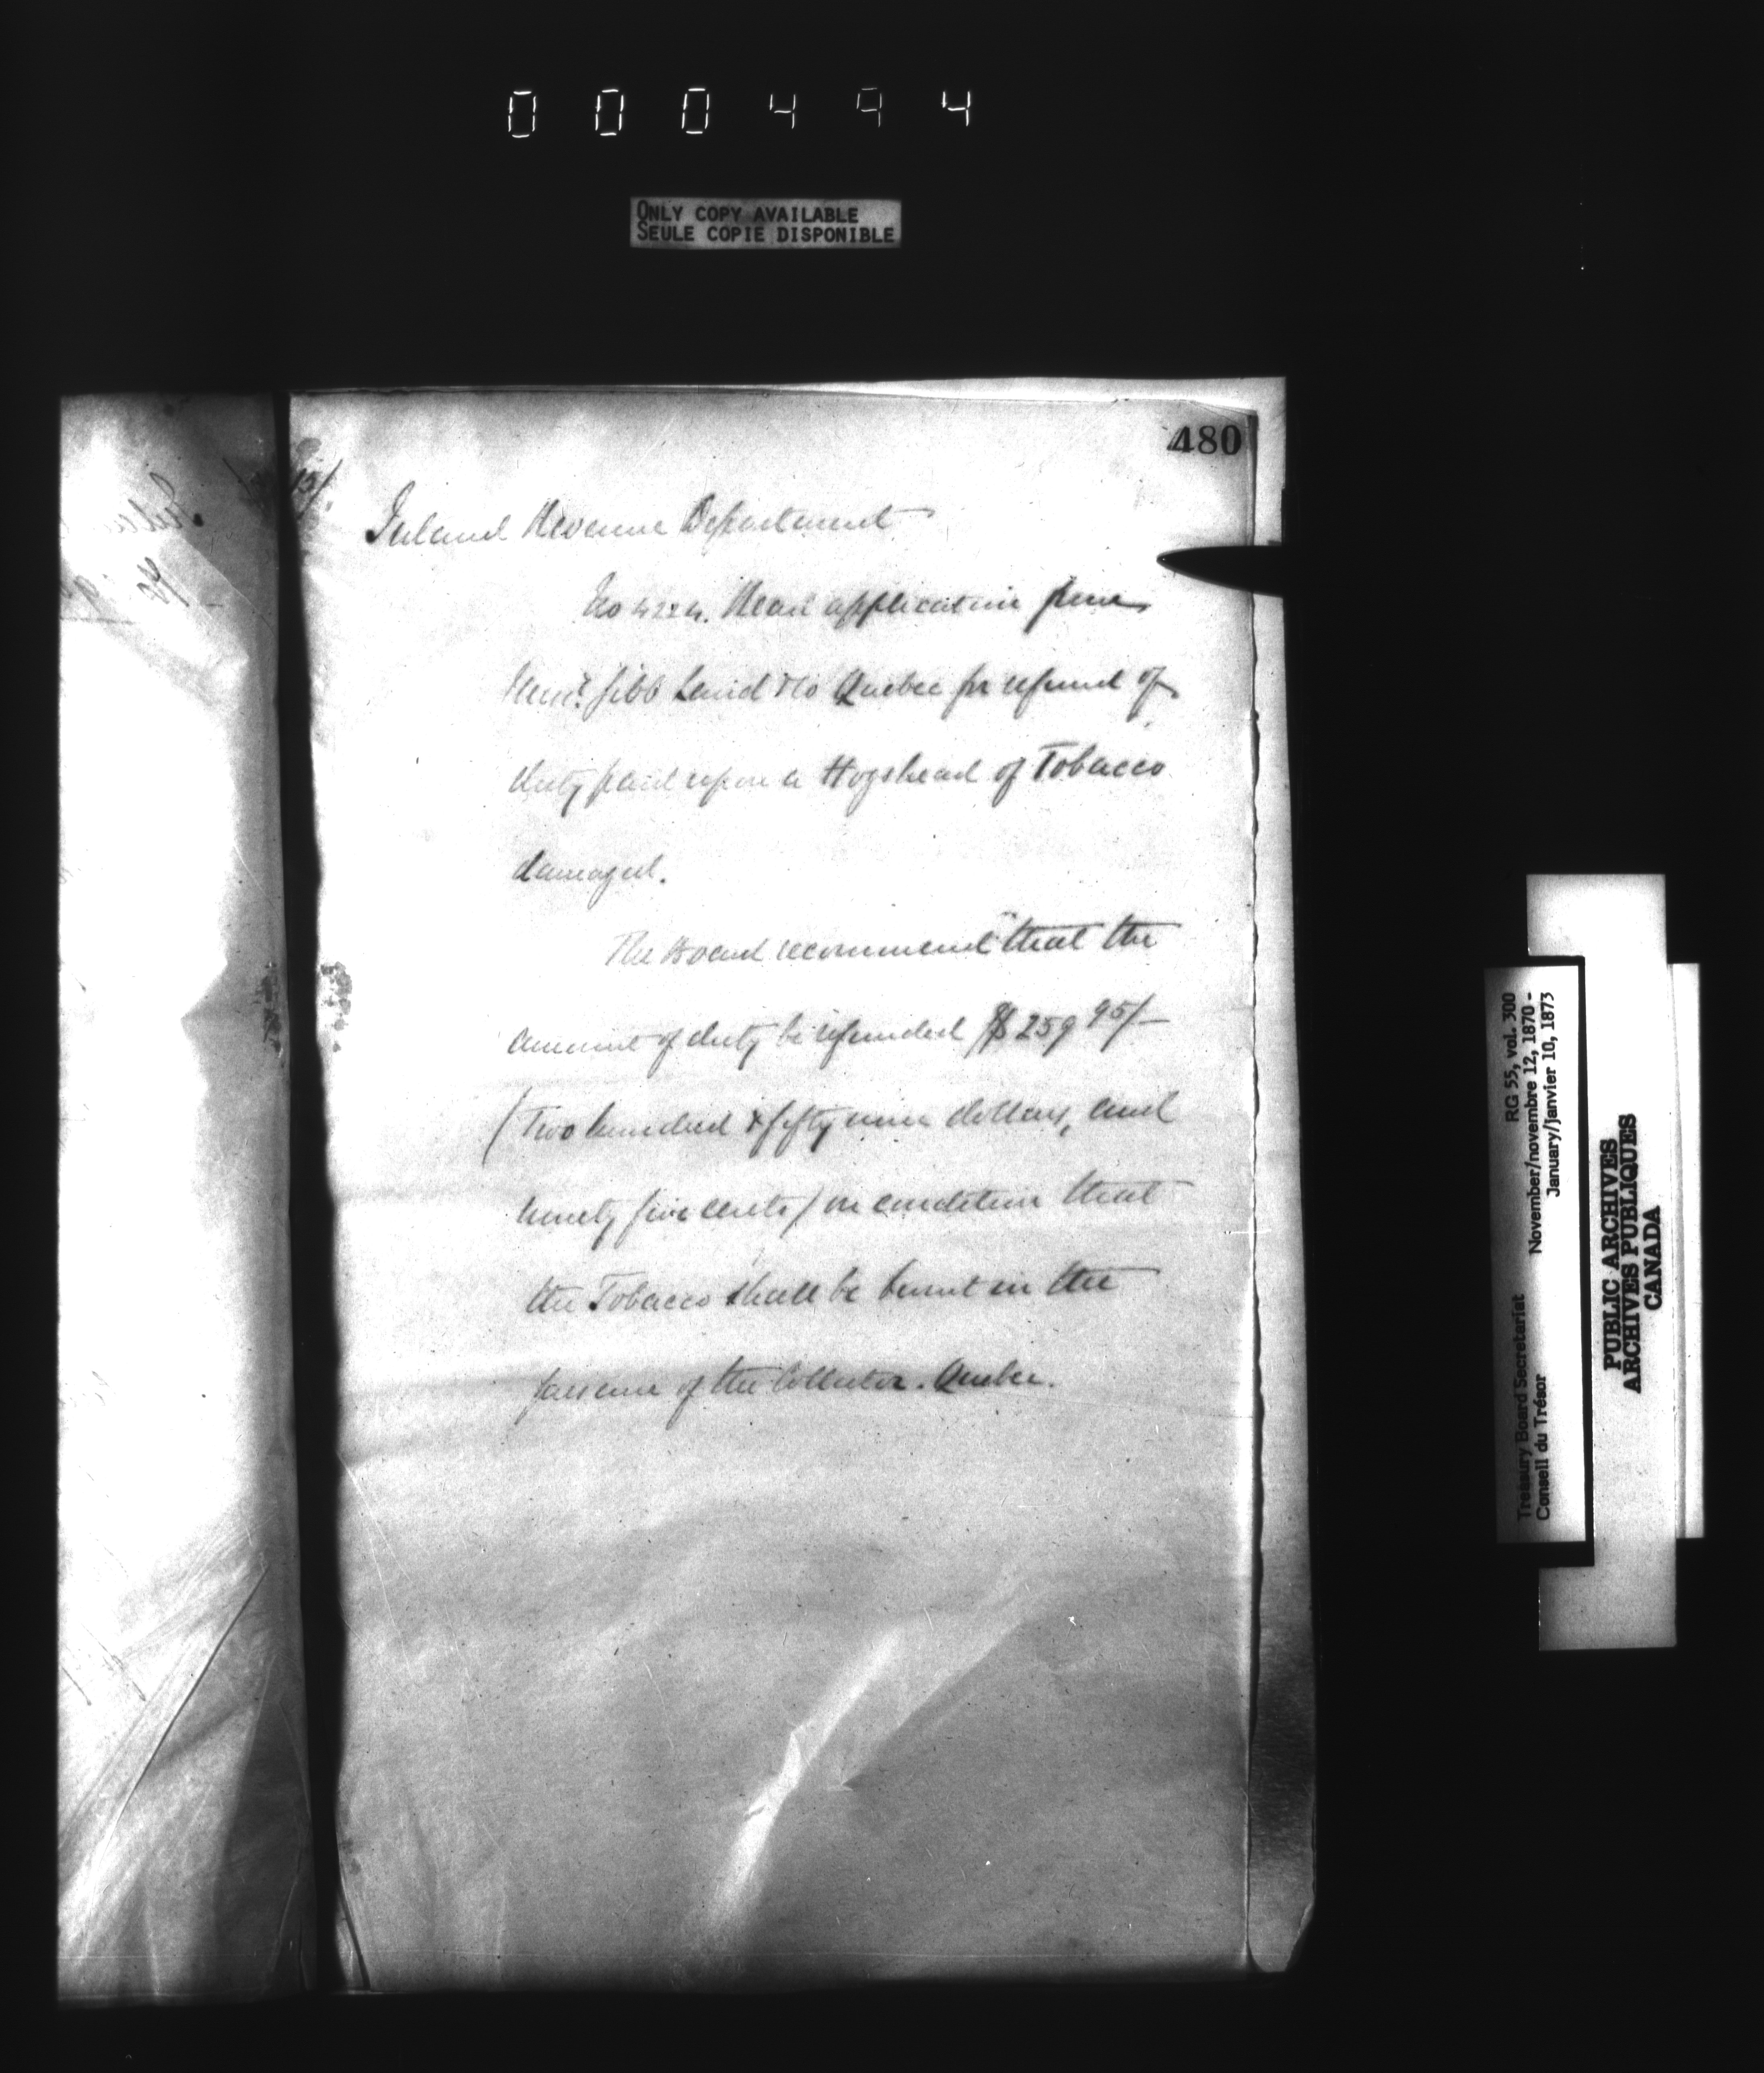 000494
ONLY COPY AVAILABLE
SEULE COPIE DISPONIBLE
480
Inland Revenue Department
No 4224. Read application from
Messrs Gibb Laird & Co Quebec for refund of
duty paid upon a Hogshead of Tobacco
damaged.
The Board recommend that the
amount of duty be refunded $259 95/-
(Two hundred & fifty nine dollars, and
ninety five cents) on condition that
the Tobacco shall be burnt in the
presence of the Collector. Quebec.
Treasury Board Secretariat RG 55, vol. 300
Conseil du Trésor November/novembre 12, 1870 -
January/janvier 10, 1873
PUBLIC ARCHIVES
ARCHIVES PUBLIQUES
CANADA